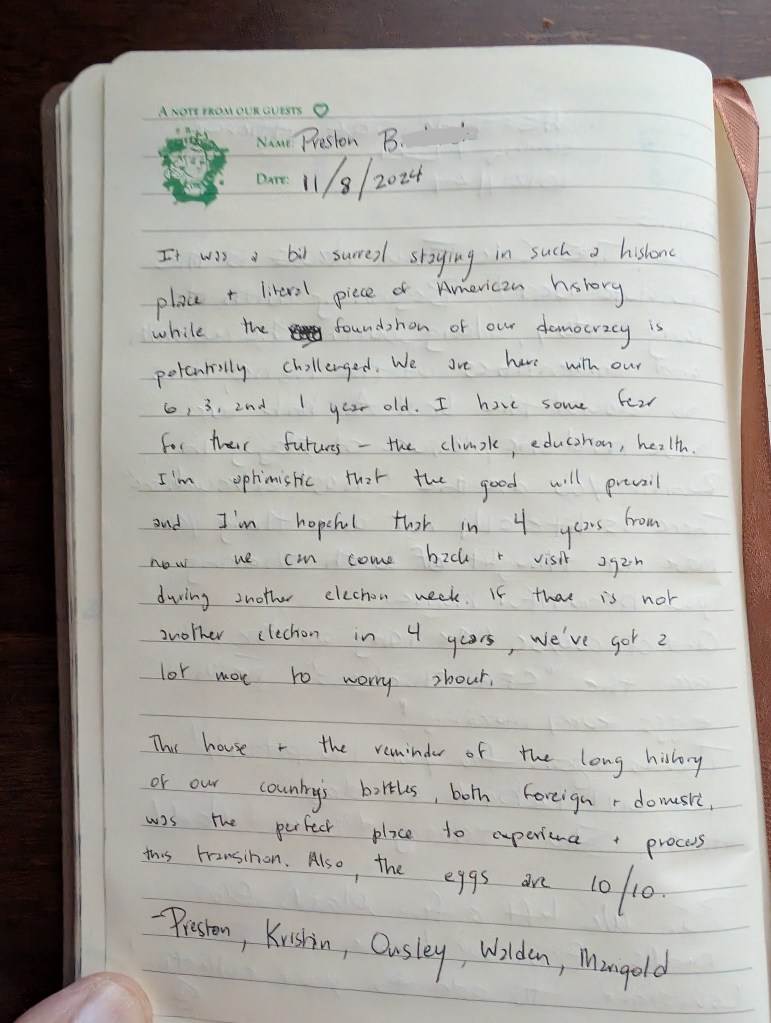 A NOTE FROM OUR GUESTS
NAME: Preston B.
DATE: 11/8/2024
It was a bit surreal staying in such a historic
place + literal piece of American history
while the foundation of our democracy is
potentially challenged. We are here with our
6, 3, and 1 year old. I have some fear
for their futures – the climate, education, health.
I'm optimistic that the good will prevail
and I'm hopeful that in 4 years from
now we can come back + visit again
during another election week. If there is not
another election in 4 years, we've got a
lot more to worry about.
This house + the reminder of the long history
of our country's battles, both foreign + domestic,
was the perfect place to experience + process
this transition. Also, the eggs are 10/10.
-Preston, Kristin, Ousley, Walden, Mangold